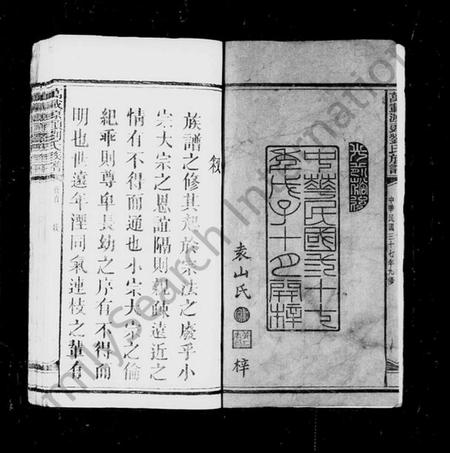 萬載源頭劉氏族譜
中華民國三十七年九修
光裕堂
中華民國三十七
年戊子十月開梓
袁山氏
梓
敘
族譜之修其起於宗法之廢乎小
宗大宗之恩誼隔則親疎遠近之
情有不得而通也小宗大宗之倫
紀乖則尊卑長幼之序有不得而
明也世遠年湮同氣連枝之輩有
FamilySearch International